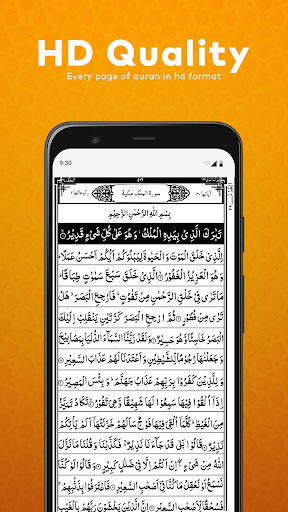 HD Quality
Every page of quran in hd format
9:30
سورة الملك مكية
بِسْمِ اللهِ الرَّحْمٰنِ الرَّحِيْمِ
تَبٰرَكَ الَّذِيْ بِيَدِهِ الْمُلْكُ وَهُوَ عَلٰى كُلِّ شَيْءٍ قَدِيْرُ ۙ
الَّذِيْ خَلَقَ الْمَوْتَ وَالْحَيٰوةَ لِيَبْلُوَكُمْ اَيُّكُمْ اَحْسَنُ عَمَلًا ؕ
وَهُوَ الْعَزِيْزُ الْغَفُوْرُ ۙ الَّذِيْ خَلَقَ سَبْعَ سَمٰوٰتٍ طِبَاقًا ؕ
مَا تَرٰى فِيْ خَلْقِ الرَّحْمٰنِ مِنْ تَفٰوُتٍ ؕ فَارْجِعِ الْبَصَرَ ۙ هَلْ
تَرٰى مِنْ فُطُوْرٍ ثُمَّ ارْجِعِ الْبَصَرَ كَرَّتَيْنِ يَنْقَلِبْ اِلَيْكَ
الْبَصَرُ خَاسِئًا وَّهُوَ حَسِيْرٌ وَلَقَدْ زَيَّنَّا السَّمَآءَ الدُّنْيَا بِمَصَابِيْحَ
وَجَعَلْنٰهَا رُجُوْمًا لِّلشَّيٰطِيْنِ وَاَعْتَدْنَا لَهُمْ عَذَابَ السَّعِيْرِ
وَلِلَّذِيْنَ كَفَرُوْا بِرَبِّهِمْ عَذَابُ جَهَنَّمَ ؕ وَبِئْسَ الْمَصِيْرُ
اِذَآ اُلْقُوْا فِيْهَا سَمِعُوْا لَهَا شَهِيْقًا وَّهِيَ تَفُوْرُ ۙ تَكَادُ تَمَيَّزُ
مِنَ الْغَيْظِ ؕ كُلَّمَآ اُلْقِيَ فِيْهَا فَوْجٌ سَاَلَهُمْ خَزَنَتُهَآ اَلَمْ يَاْتِكُمْ
نَذِيْرٌ قَالُوْا بَلٰى قَدْ جَآءَنَا نَذِيْرٌ ۙ فَكَذَّبْنَا وَقُلْنَا مَا نَزَّلَ
اللهُ مِنْ شَيْءٍ ۚ اِنْ اَنْتُمْ اِلَّا فِيْ ضَلٰلٍ كَبِيْرٍ وَقَالُوْا
لَوْ كُنَّا نَسْمَعُ اَوْ نَعْقِلُ مَا كُنَّا فِيْٓ اَصْحٰبِ السَّعِيْرِ